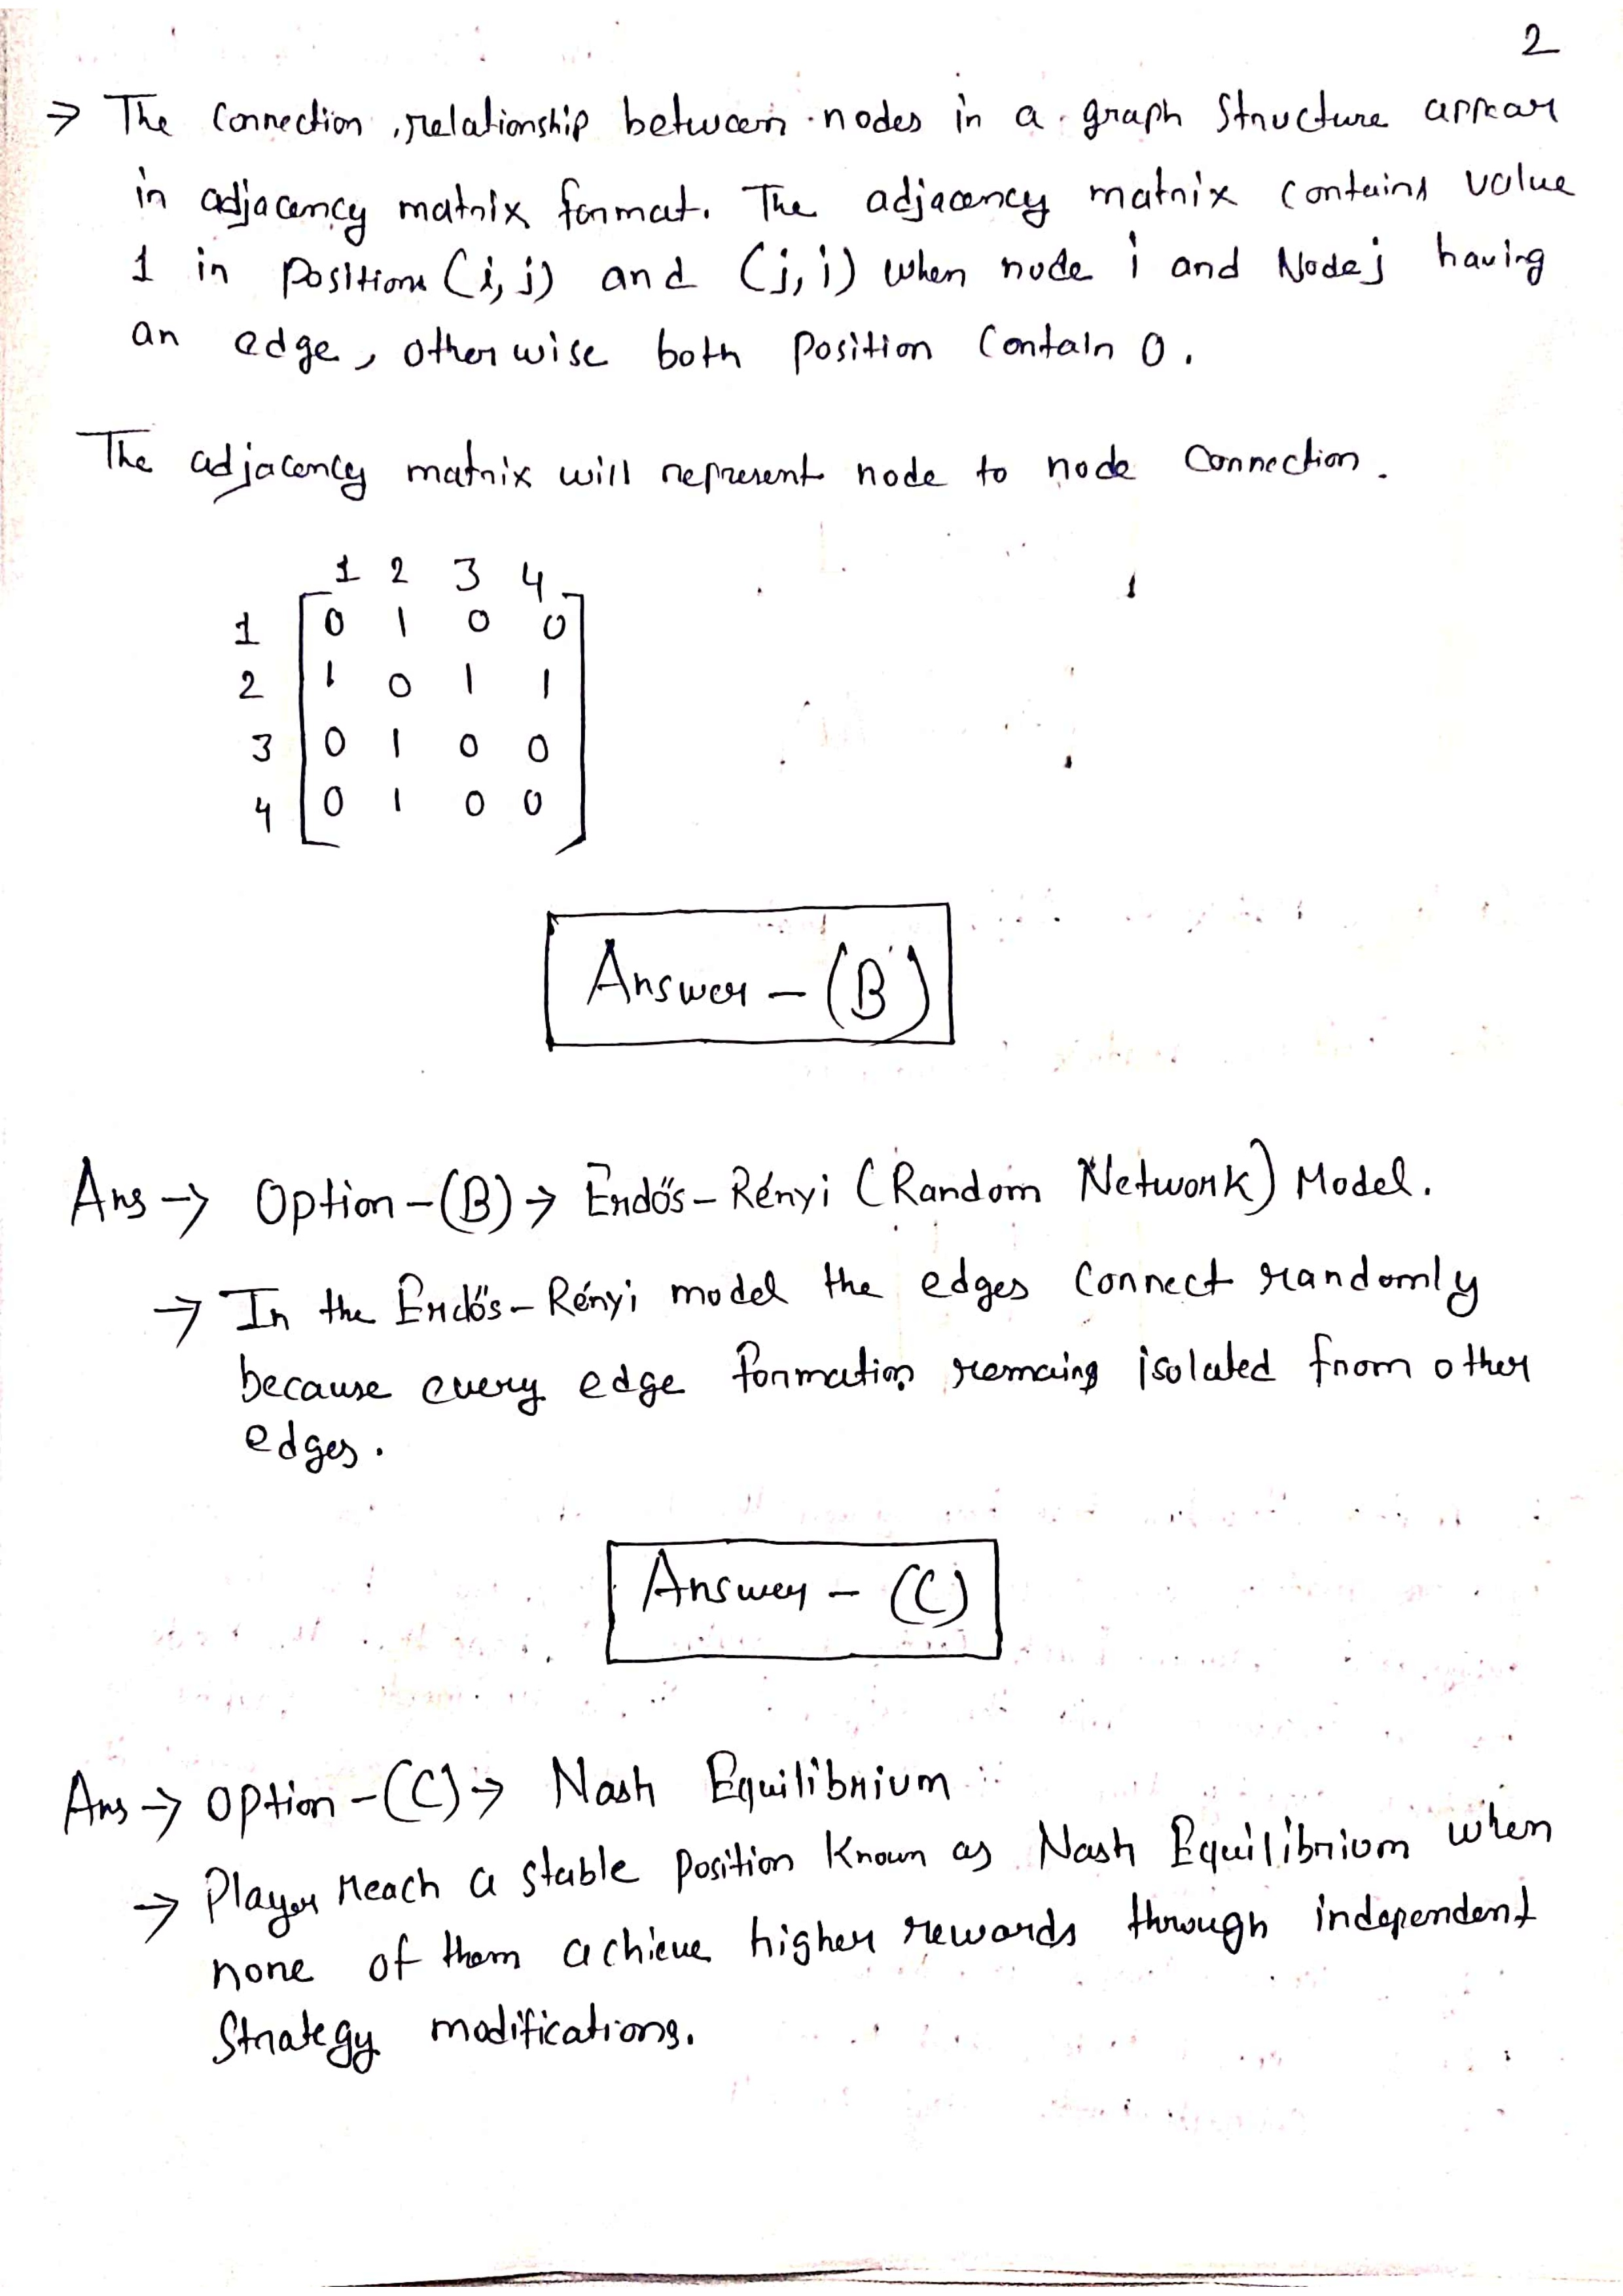 2
→ The Connection, relationship between nodes in a graph Structure appear
in adjacency matrix format. The adjacency matrix contains value
1 in positions (i, j) and (j, i) when node i and Node j having
an edge, otherwise both position Contain 0.
The adjacency matrix will represent node to node Connection.
1 2 3 4
1 0 1 0 0
2 1 0 1 1
3 0 1 0 0
4 0 1 0 0
Answer - (B)
Ans → Option - (B) → Erdős - Rényi (Random Network) Model.
→ In the Erdős - Rényi model the edges Connect randomly
because every edge formation remaing isolated from other
edges.
Answer - (C)
Ans → Option - (C) → Nash Equilibrium
→ Player reach a stable position Known as Nash Equilibrium when
none of them achieve higher rewards through independent
Strategy modifications.